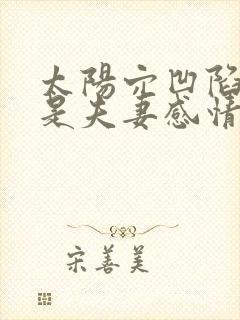 太陽穴凹陷
是夫妻感情
宋善美